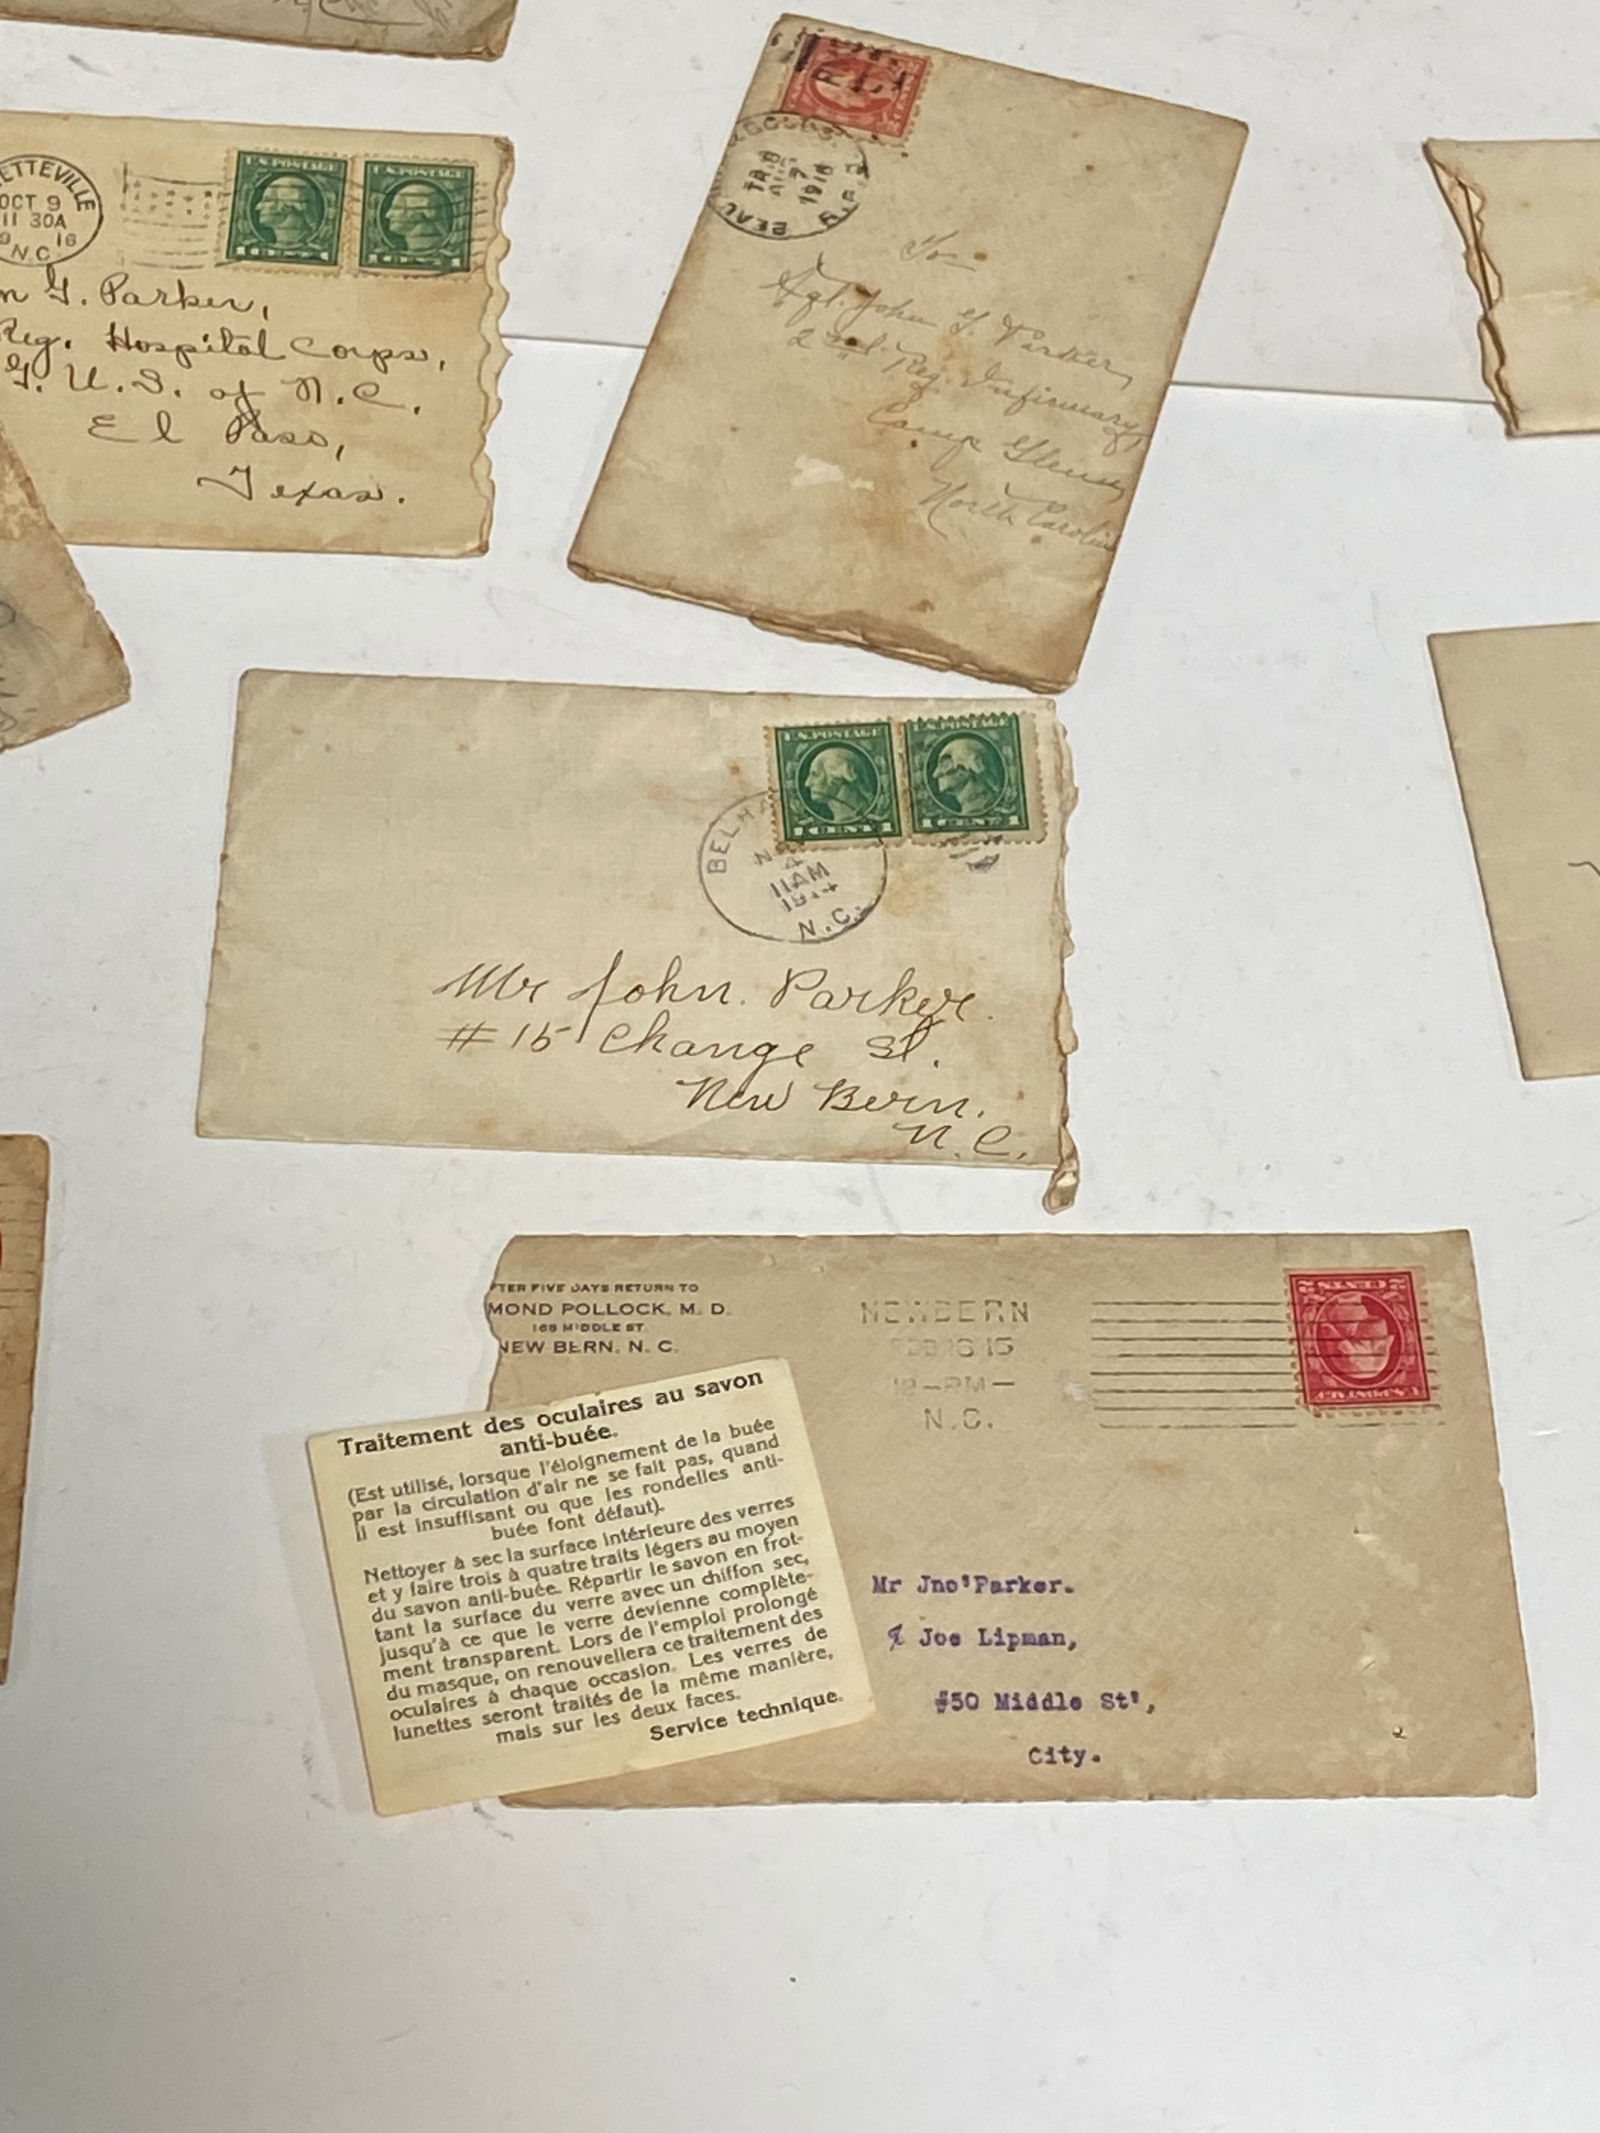 ETTEVILLE
OCT 9
11 30A
16
N.C.
U.S. POSTAGE
U.S. POSTAGE
1 CENT 1
1 CENT 1
G. Parker,
Reg. Hospital Corps,
G. U. S. of N. C.
El Paso,
Texas.
1916
R.P.O.
To
Sgt. John G. Parker,
2nd. Reg. Infirmary,
Camp Glenn,
North Carolina
U.S. POSTAGE
U.S. POSTAGE
1 CENT 1
1 CENT 1
BELHA
4
11AM
1914
N.C.
Mr John. Parker.
#15 Change St.
New Bern.
N.C.
FTER FIVE DAYS RETURN TO
MOND POLLOCK, M. D.
168 MIDDLE ST.
NEW BERN, N. C.
NEWBERN
FEB 16 15
12-PM-
N.C.
U.S. POSTAGE
2 CENTS 2
Mr Jno'Parker.
℅ Joe Lipman,
#50 Middle St',
City.
Traitement des oculaires au savon
anti-buée.
(Est utilisé, lorsque l'éloignement de la buée
par la circulation d'air ne se fait pas, quand
il est insuffisant ou que les rondelles anti-
buée font défaut).
Nettoyer à sec la surface intérieure des verres
et y faire trois à quatre traits légers au moyen
du savon anti-buée. Répartir le savon en frot-
tant la surface du verre avec un chiffon sec,
jusqu'à ce que le verre devienne complète-
ment transparent. Lors de l'emploi prolongé
du masque, on renouvellera ce traitement des
oculaires à chaque occasion. Les verres de
lunettes seront traités de la même manière,
mais sur les deux faces.
Service technique.